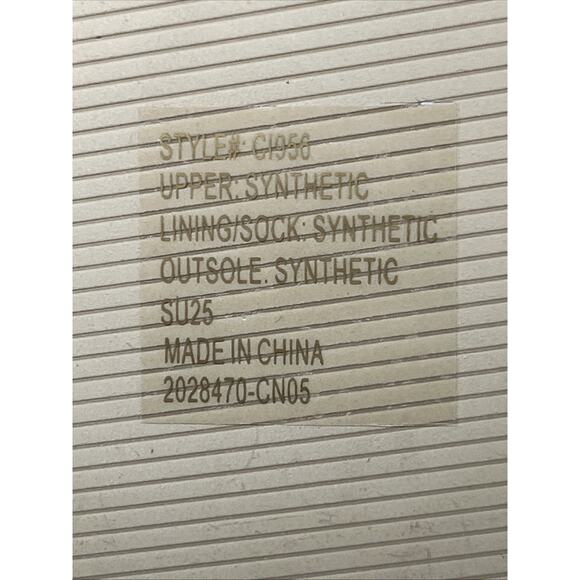 STYLE#: CI956
UPPER: SYNTHETIC
LINING/SOCK: SYNTHETIC
OUTSOLE: SYNTHETIC
SU25
MADE IN CHINA
2028470-CN05